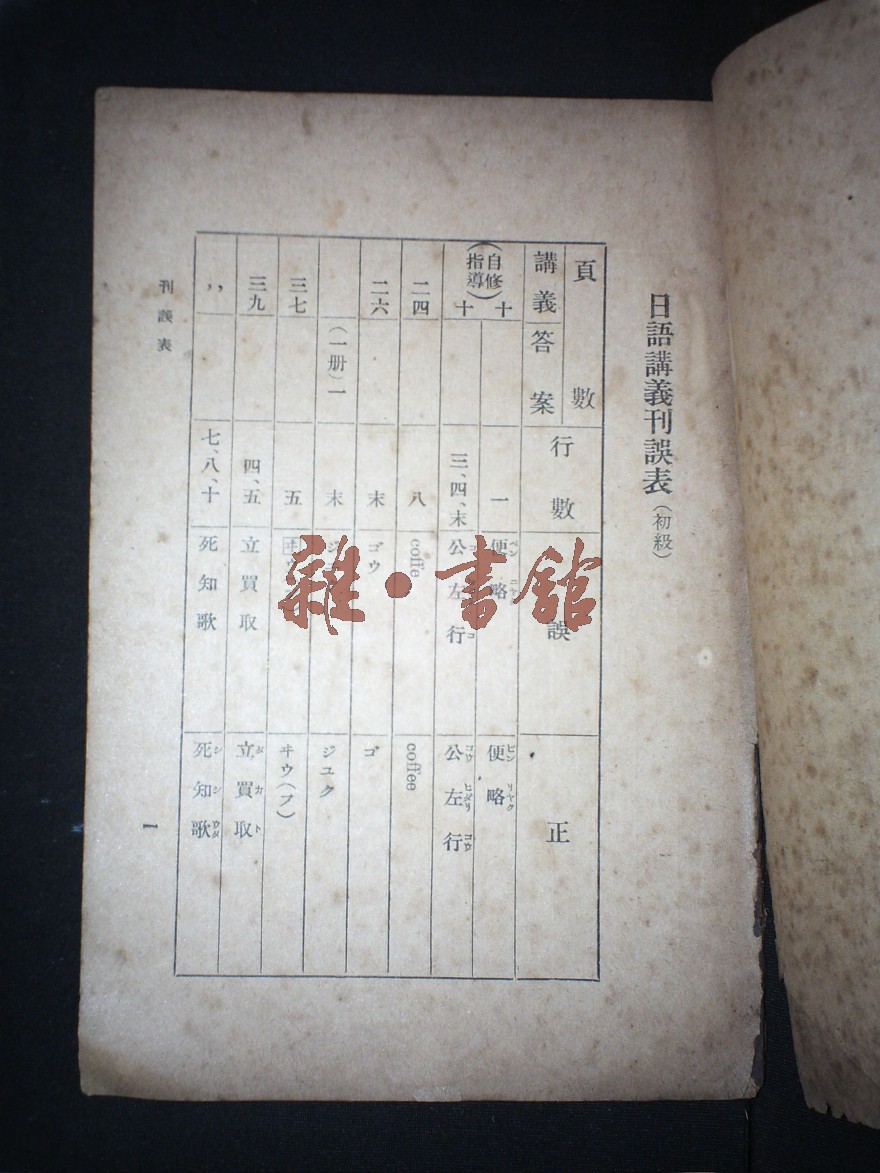 日語講義刊誤表(初級)
頁數
講義 答案
行數
誤
正
(自修指導)十 一 便略 便ビン略リヤク
十 三、四、末 公左行 公コウ左ヒダリ行コウ
二四 八 coffe coffee
二六 末 ゴウ ゴ
(一册)一 末 ジユク
三七 五 ヰウ(フ)
三九 四、五 立買取 立タ買カ取ト
〃 七、八、十 死知歌 死シ知シ歌ウタ
刊誤表
1
雜·書館